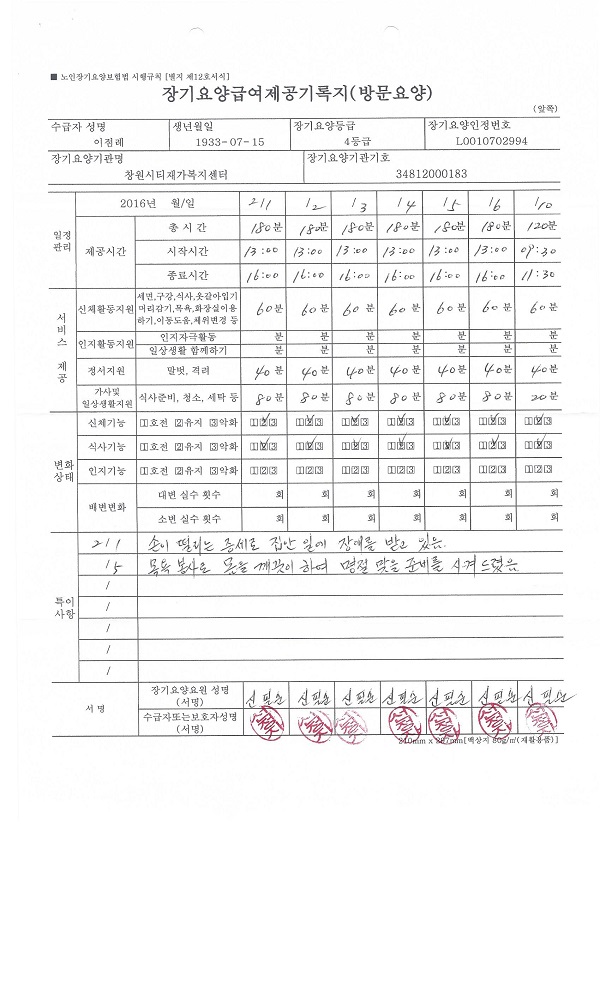 ■ 노인장기요양보험법 시행규칙 [별지 제12호서식]
장기요양급여제공기록지(방문요양)
(앞쪽)
수급자 성명 생년월일 장기요양등급 장기요양인정번호
이점례 1933-07-15 4등급 L0010702994
장기요양기관명 장기요양기관기호
창원시티재가복지센터 34812000183
2016년 월/일 2/1 /2 /3 /4 /5 /6 /10
일정관리 제공시간
총 시 간 180분 180분 180분 180분 180분 180분 120분
시작시간 13:00 13:00 13:00 13:00 13:00 13:00 09:30
종료시간 16:00 16:00 16:00 16:00 16:00 16:00 11:30
서비스 제공
신체활동지원 세면,구강,식사,옷갈아입기 머리감기,목욕,화장실이용하기,이동도움,체위변경 등 60분 60분 60분 60분 60분 60분 60분
인지활동지원 인지자극활동 분 분 분 분 분 분 분
일상생활 함께하기 분 분 분 분 분 분 분
정서지원 말벗, 격려 40분 40분 40분 40분 40분 40분 40분
가사및 일상생활지원 식사준비, 청소, 세탁 등 80분 80분 80분 80분 80분 80분 20분
변화상태
신체기능 1호전 2유지 3악화 1 2 3 1 2 3 1 2 3 1 2 3 1 2 3 1 2 3 1 2 3
식사기능 1호전 2유지 3악화 1 2 3 1 2 3 1 2 3 1 2 3 1 2 3 1 2 3 1 2 3
인지기능 1호전 2유지 3악화 1 2 3 1 2 3 1 2 3 1 2 3 1 2 3 1 2 3 1 2 3
배변변화
대변 실수 횟수 회 회 회 회 회 회 회
소변 실수 횟수 회 회 회 회 회 회 회
특이사항
2/1 손이 떨리는 증세로 집안 일에 장애를 받고 있음.
/5 목욕 봉사로 몸을 깨끗이 하여 명절 맞을 준비를 시켜 드렸음
/
/
/
/
서 명
장기요양요원 성명 (서명) 신필순 신필순 신필순 신필순 신필순 신필순 신필순
수급자또는보호자성명 (서명)
210mm x 297mm[백상지 80g/㎡(재활용품)]